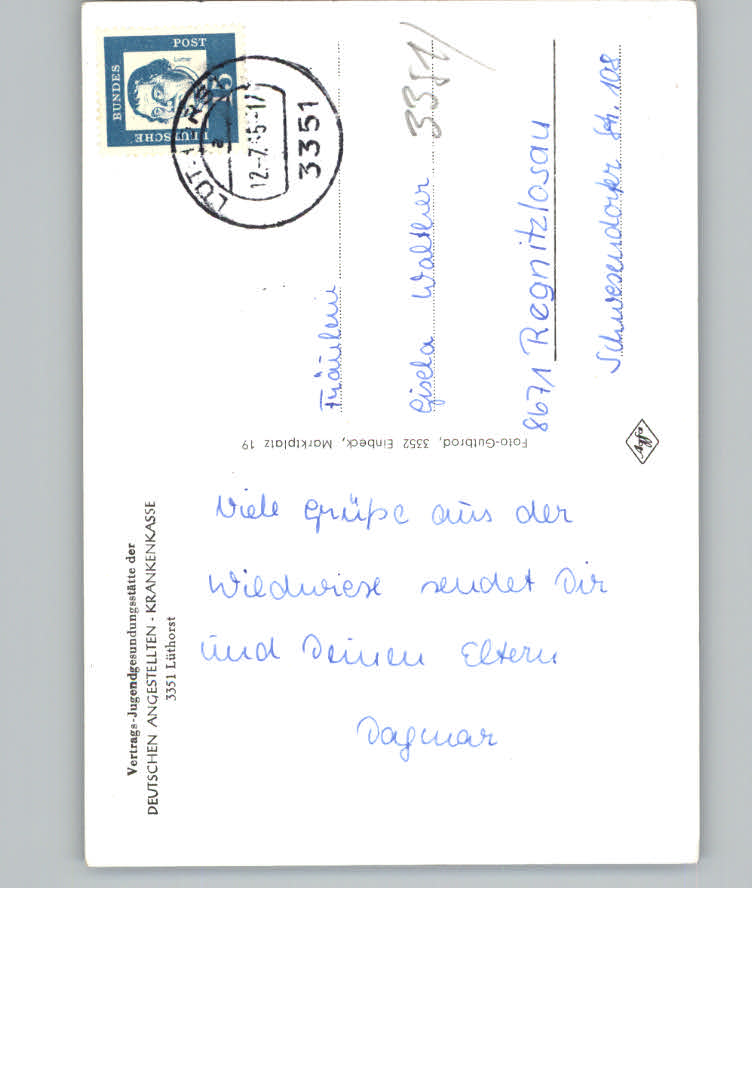 Vertrags-Jugendgesundungsstätte der
DEUTSCHEN ANGESTELLTEN - KRANKENKASSE
3351 Lüthorst
Viele Grüße aus der
Wildwiese sendet Dir
und Deinen Eltern
Dagmar
Foto-Gutbrod, 3352 Einbeck, Marktplatz 19
DEUTSCHE
BUNDES
POST
Luther
15
3351
3351/
Fräulein
Gisela Walther
8671 Regnitzlosau
Schwesendorfer Str. 108
Agfa